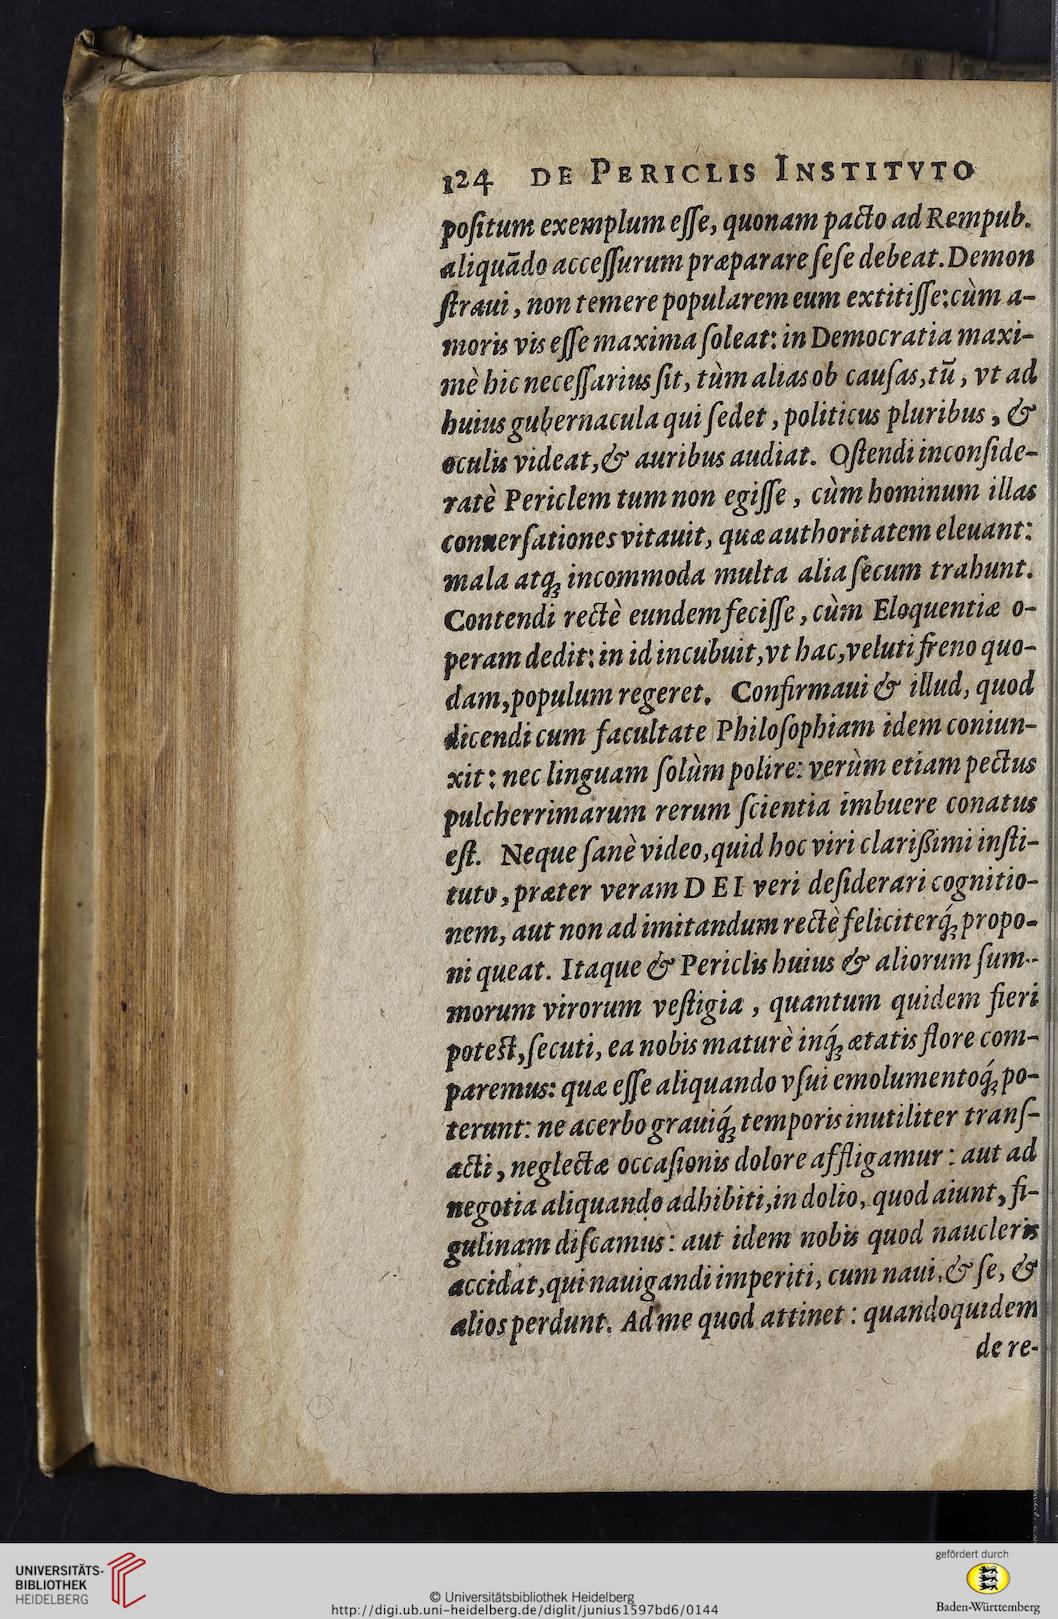 124 DE PERICLIS INSTITVTO
poſitum exemplum eſſe, quonam pacto ad Rempub.
aliquādo acceſſurum præparare ſeſe debeat. Demon
ſtraui, non temere popularem eum extitiſſe: cùm a-
moris vis eſſe maxima ſoleat: in Democratia maxi-
mè hic neceſſarius ſit, tùm alias ob cauſas, tū, vt ad
huius gubernacula qui ſedet, politicus pluribus, &
oculis videat, & auribus audiat. Oſtendi inconſide-
ratè Periclem tum non egiſſe, cùm hominum illas
conuerſationes vitauit, quæ authoritatem eleuant:
mala atq; incommoda multa alia ſecum trahunt.
Contendi rectè eundem feciſſe, cùm Eloquentiæ o-
peram dedit: in id incubuit, vt hac, veluti freno quo-
dam, populum regeret. Confirmaui & illud, quod
dicendi cum facultate Philoſophiam idem coniun-
xit: nec linguam ſolùm polire: verùm etiam pectus
pulcherrimarum rerum ſcientia imbuere conatus
eſt. Neque ſanè video, quid hoc viri clarißimi inſti-
tuto, præter veram DEI veri deſiderari cognitio-
nem, aut non ad imitandum rectè feliciterq́; propo-
ni queat. Itaque & Periclis huius & aliorum ſum-
morum virorum veſtigia, quantum quidem fieri
poteſt, ſecuti, ea nobis maturè inq́; ætatis flore com-
paremus: quæ eſſe aliquando vſui emolumentoq́; po-
terunt: ne acerbo grauiq́; temporis inutiliter tranſ-
acti, neglectæ occaſionis dolore affligamur: aut ad
negotia aliquando adhibiti, in dolio, quod aiunt, fi-
gulinam diſcamus: aut idem nobis quod naucleris
accidat, qui nauigandi imperiti, cum naui, & ſe, &
alios perdunt. Ad me quod attinet: quandoquidem
de re-
UNIVERSITÄTS-
BIBLIOTHEK
HEIDELBERG
© Universitätsbibliothek Heidelberg
http://digi.ub.uni-heidelberg.de/diglit/junius1597bd6/0144
gefördert durch
Baden-Württemberg